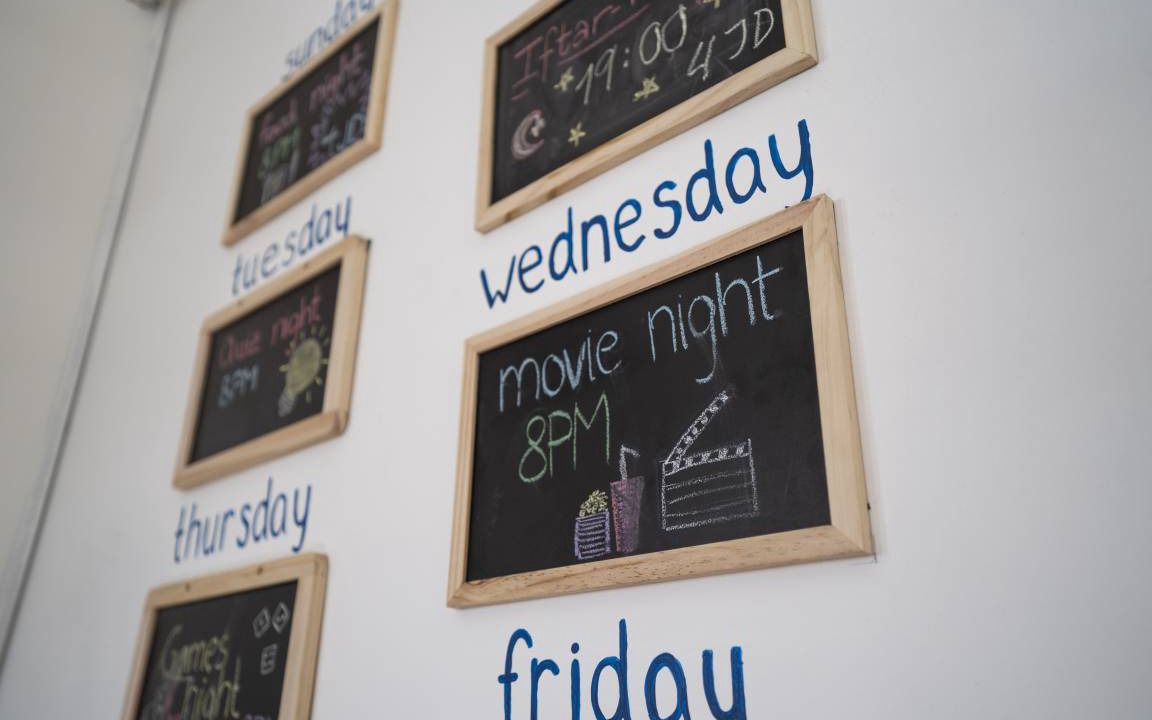 sunday
night
8PM
4JD
Iftar
19:00
4JD
tuesday
Quiz night
8PM
wednesday
movie night
8PM
thursday
Games
night
friday